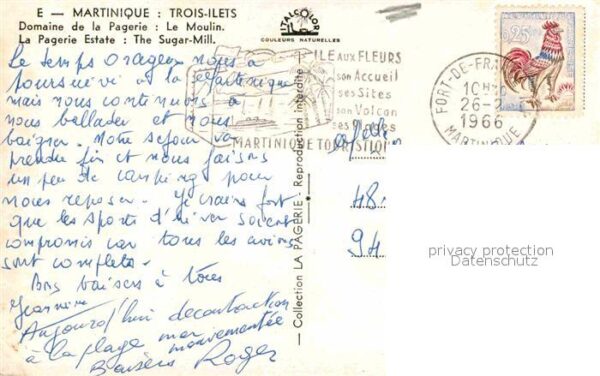 E — MARTINIQUE : TROIS-ILETS
Domaine de la Pagerie : Le Moulin.
La Pagerie Estate : The Sugar-Mill.
COULEURS NATURELLES
Le temps orageux nous a
poursuivi à la Martinique
mais nous continuons à
nous ballader et nous
baigner. Notre séjour va
prendre fin et nous faisons
un peu de camping pour
nous reposer. Je crains fort
que les sports d'hiver soient
compromis car tous les avions
sont complets.
Bons baisers à tous
Jeannine
Aujourd'hui decontraction
à la plage mer mouvementée
Baisers Roger
Collection LA PAGERIE - Reproduction interdite
ILE AUX FLEURS
son Accueil
ses Sites
son Volcan
ses
MARTINIQUE TOURISTIQUE
FORT-DE-FRANCE
10H
26-2
1966
MARTINIQUE
0,25
48
94
privacy protection
Datenschutz